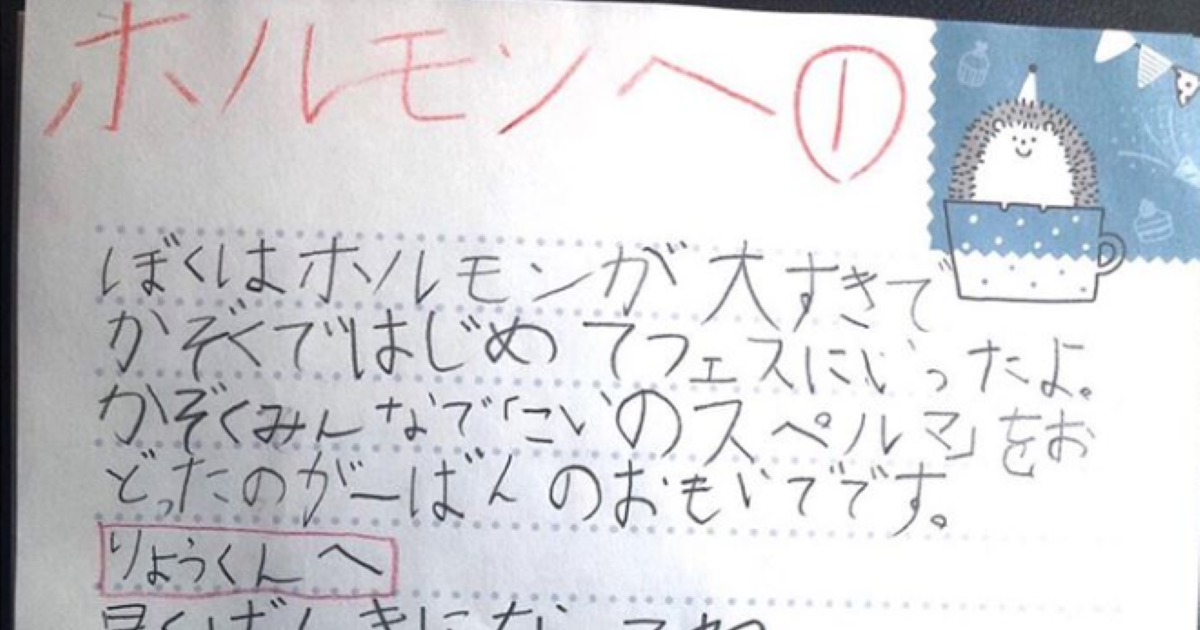 ホルモンへ①
ぼくはホルモンが大すきで
かぞくではじめてフェスにいったよ。
かぞくみんなで「こいのスペルマ」をお
どったのが一ばんのおもいでです。
りょうくんへ
早くげんきになってね